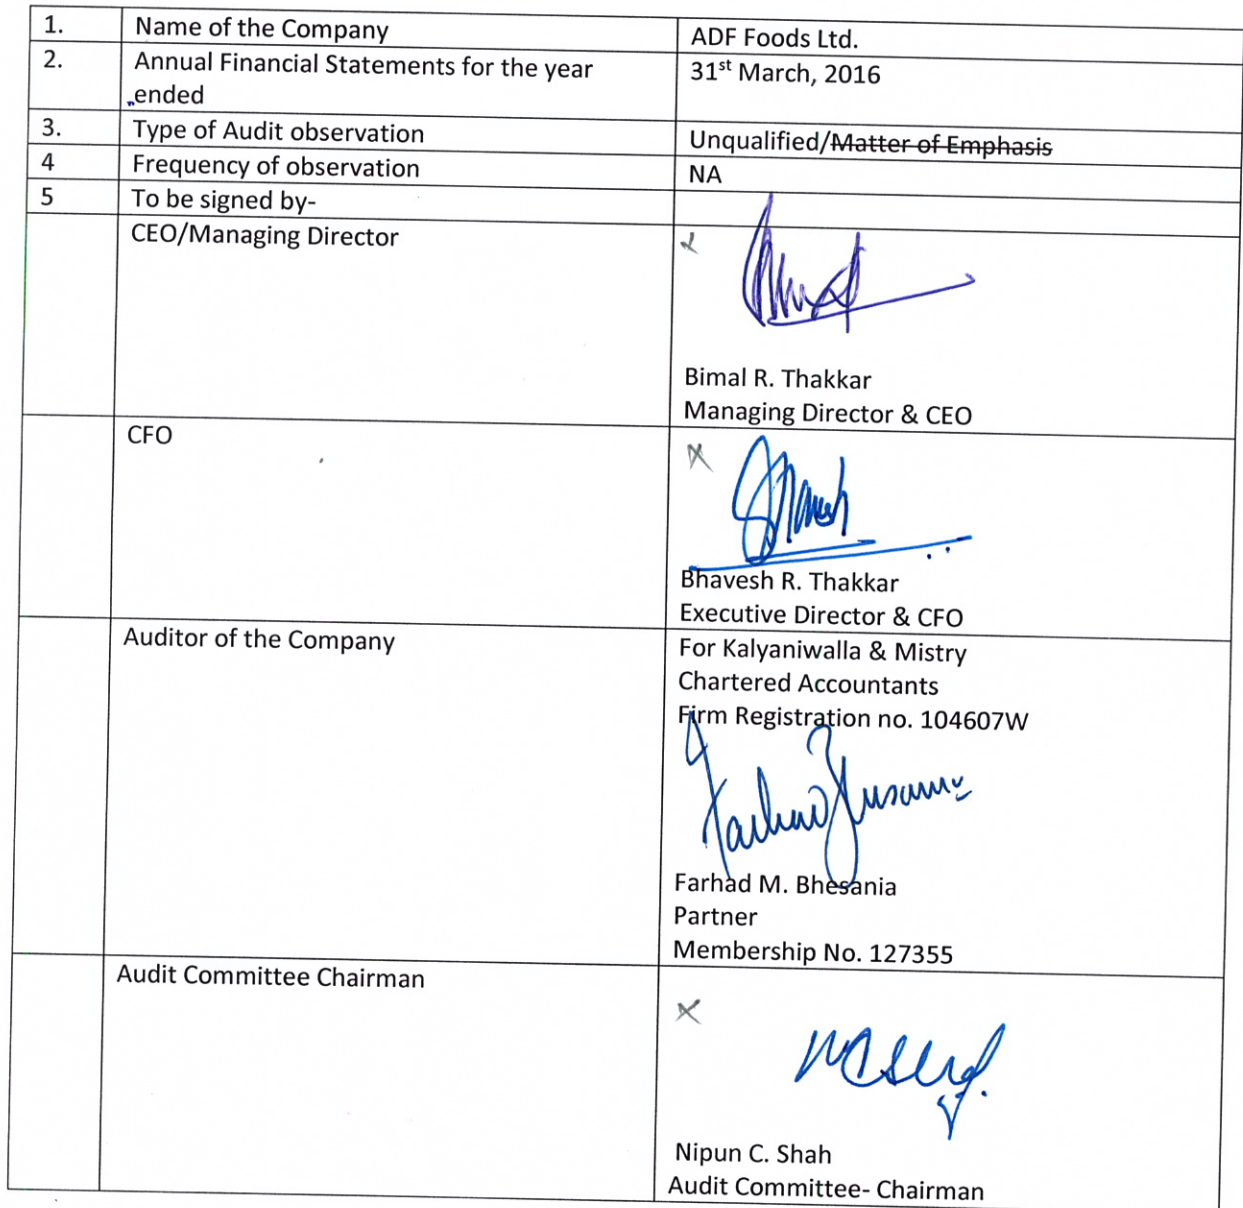 1. Name of the Company ADF Foods Ltd.
2. Annual Financial Statements for the year 31st March, 2016
ended
3. Type of Audit observation Unqualified/Matter of Emphasis
4 Frequency of observation NA
5 To be signed by-
CEO/Managing Director
Bimal R. Thakkar
Managing Director & CEO
CFO
Bhavesh R. Thakkar
Executive Director & CFO
Auditor of the Company For Kalyaniwalla & Mistry
Chartered Accountants
Firm Registration no. 104607W
Farhad M. Bhesania
Partner
Membership No. 127355
Audit Committee Chairman
Nipun C. Shah
Audit Committee- Chairman